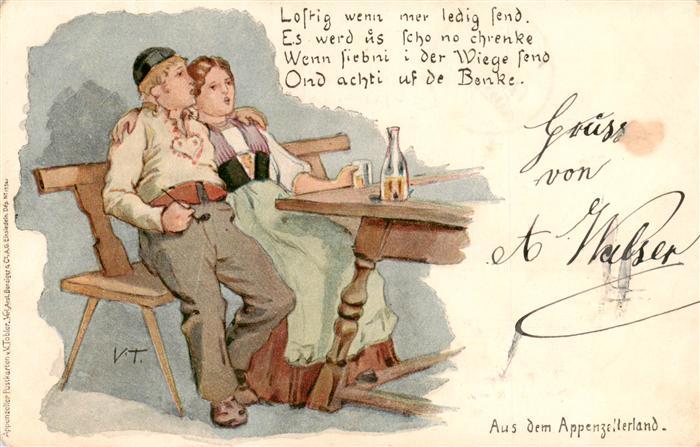 Loſtig wenn mer ledig ſend.
Es werd üs ſcho no chrenke
Wenn ſiebni i der Wiege ſend
Ond achti uf de Benke.
Gruss
von
A Walser
V.T.
Aus dem Appenzellerland.
Appenzeller Postkarten v. V. Tobler, Verl. Anst. Benziger & Co. A.G. Einsiedeln.